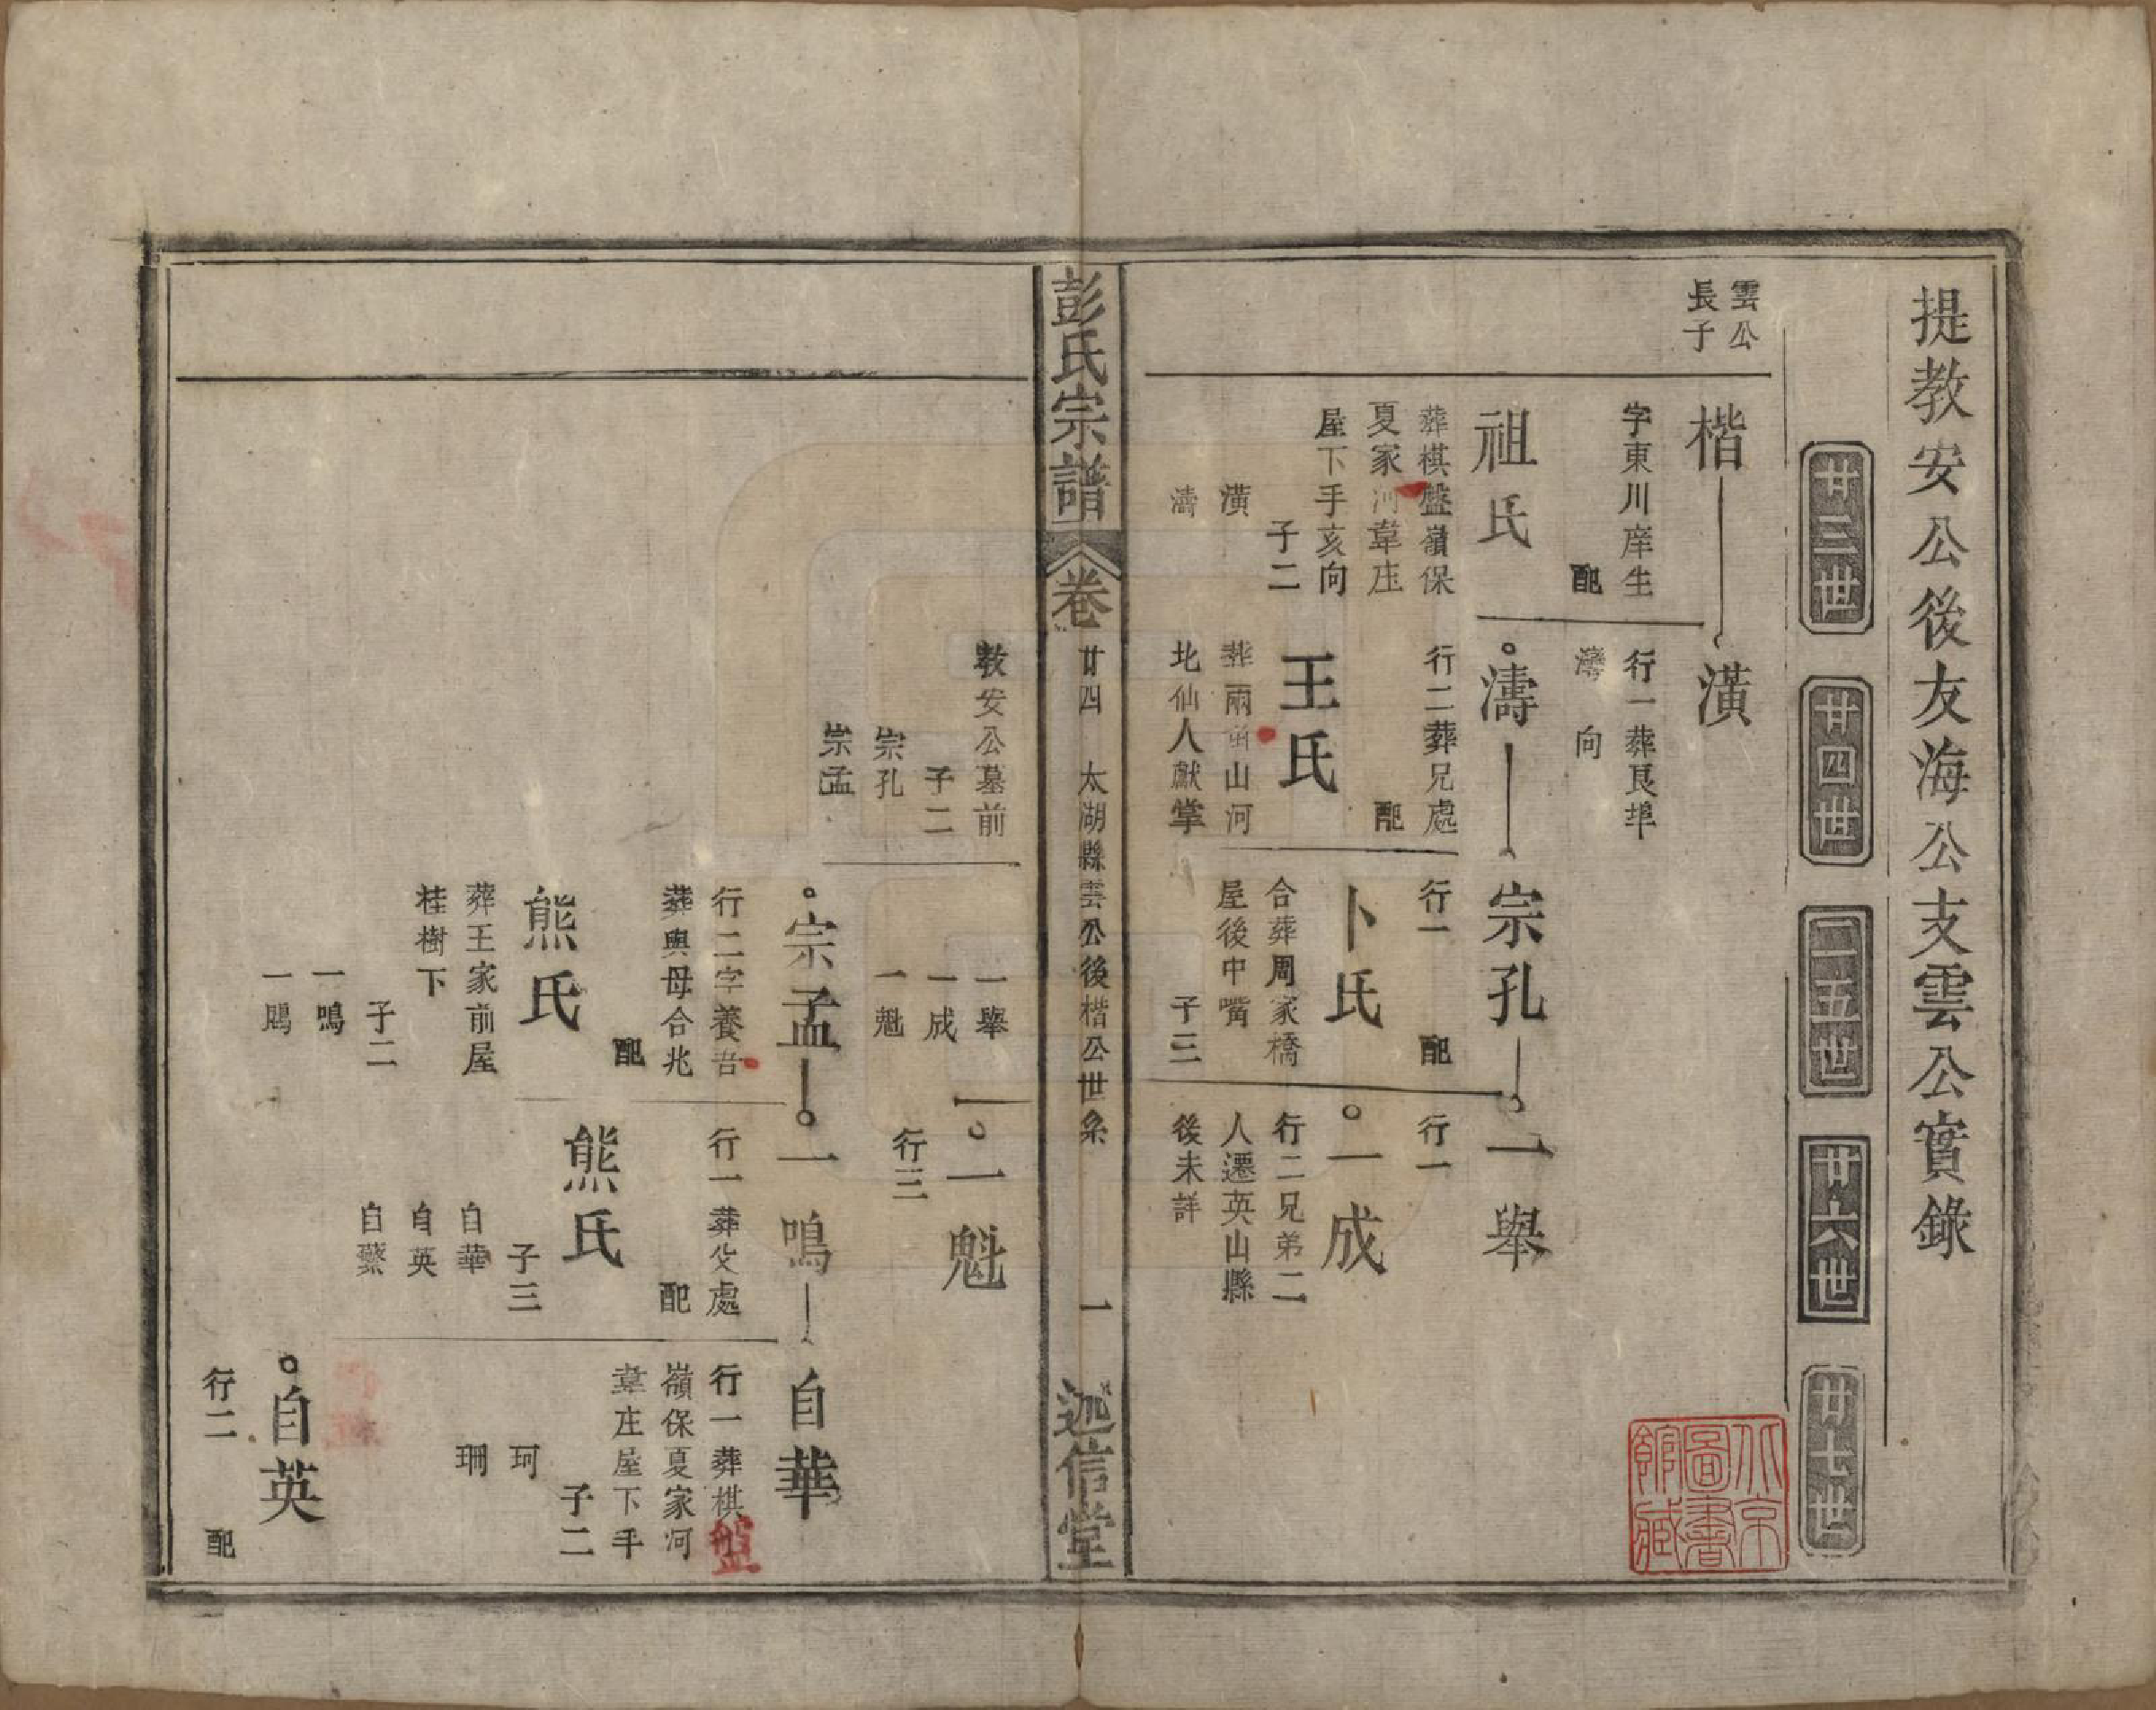 提教安公後友海公支雲公實錄
廿三世
廿四世
二五世
廿六世
廿七世
雲公
長子
楷
字東川庠生
配
祖氏
葬棋盤嶺保
夏家河韋庄
屋下手亥向
子二
潢
濤
潢
行一葬艮埠
灣 向
濤
行二葬兄處
配
王氏
葬兩 山河
北仙人獻掌
宗孔
行一 配
卜氏
合葬周家橋
屋後中嘴
子三
一舉
行一
一成
行二兄弟二
人遷英山縣
後未詳
北京
圖書
館藏
彭氏宗譜
卷
廿四
太湖縣雲公後楷公世系
一
述信堂
教安公墓前
子二
宗孔
宗孟
一舉
一成
一魁
一魁
行三
宗孟
行二字養吾
葬與母合兆
配
熊氏
葬王家前屋
桂樹下
子二
一鳴
一鵰
一鳴
行一葬父處
配
熊氏
子三
自華
自英
自蘩
自華
行一葬棋盤
嶺保夏家河
韋庄屋下手
子二
珂
珊
自英
行二 配